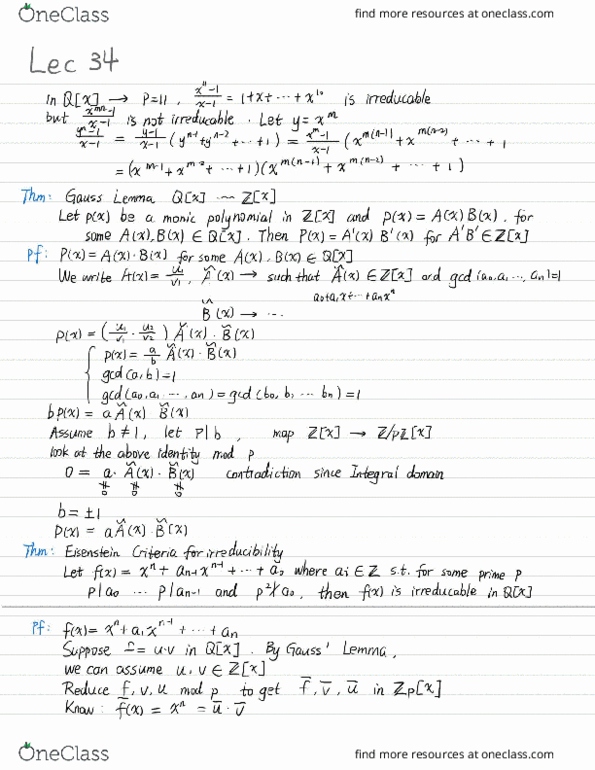 OneClass
find more resources at oneclass.com
Lec 34
in Q[x] → P=11, (x^11-1)/(x-1) = 1+x+⋯+x^10 is irreducable
but (x^mn-1)/(x-1) is not irreducable. Let y= x^m
(y^n-1)/(x-1) = (y-1)/(x-1) (y^n-1+y^n-2+⋯+1) = (x^m-1)/(x-1) (x^m(n-1)+x^m(n-2)+⋯+1
=(x^m-1+x^m-2+⋯+1)(x^m(n-1)+x^m(n-2)+⋯+1)
Thm: Gauss Lemma Q[x] ~ Z[x]
Let p(x) be a monic polynomial in Z[x] and p(x)=A(x)B(x), for
some A(x),B(x)∈Q[x]. Then P(x)=A'(x)B'(x) for A'B'∈Z[x]
Pf: P(x)=A(x)·B(x) for some A(x),B(x)∈Q[x]
We write A(x)= u₁/v₁, Ã(x) → such that Ã(x)∈Z[x] and gcd(a₀,a₁,⋯,an)=1
a₀+a₁x+⋯+anx^n
B̃(x) → ⋯
p(x)=(u₁/v₁·u₂/v₂) Ã(x)·B̃(x)
{ p(x)= a/b Ã(x)·B̃(x)
gcd(a,b)=1
gcd(a₀,a₁,⋯,an)=gcd(b₀,b,⋯bn)=1
bp(x)=aÃ(x) B̃(x)
Assume b≠1, let P|b, map Z[x] → Z/pZ[x]
look at the above identity mod p
0 = a·Ã(x)·B̃(x) contradiction since Integral domain
≠0 ≠0 ≠0
b=±1
P(x)=aÃ(x)·B̃(x)
Thm: Eisenstein Criteria for irreducibility
Let f(x)=x^n+an-1x^n-1+⋯+a₀ where ai∈Z s.t. for some prime p
p|a₀ ⋯ p|an-1 and p²∤a₀, then f(x) is irreducable in Q[x]
Pf: f(x)=x^n+a₁x^n-1+⋯+an
Suppose f=u·v in Q[x]. By Gauss' Lemma,
we can assume u,v∈Z[x]
Reduce f,v,u mod p to get f̄,v̄,ū in Zp[x]
Know: f̄(x)=x^n=ū·v̄
OneClass
find more resources at oneclass.com